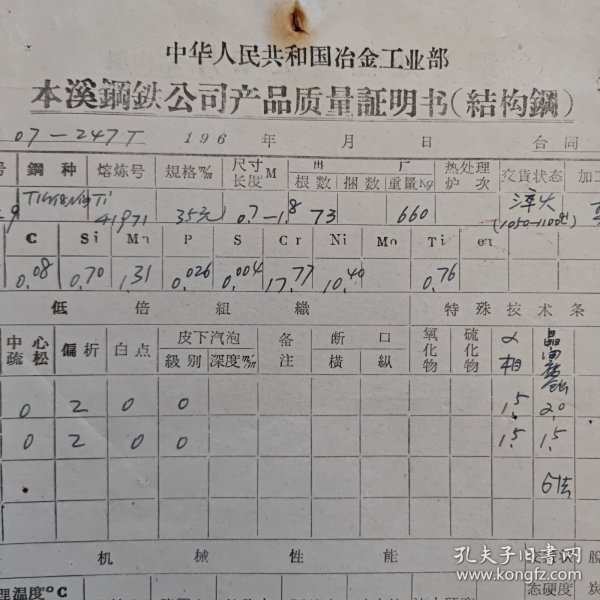 中华人民共和国冶金工业部
本溪鋼鉄公司产品质量証明书(結构鋼)
07-247T 196 年 月 日 合同
号 鋼种 熔炼号 規格㎜ 尺寸长度M 出厂 热处理炉次 交貨状态 加工
根数 捆数 重量Kg
9 Ti 41971 35 0.7-1.8 73 660 淬火
(1050-1100℃)
C Si Mn P S Cr Ni Mo Ti cu
0.08 0.70 1.31 0.026 0.004 17.77 10.40 0.76
低倍組織 特殊技术条
中心疏松 偏析 白点 皮下汽泡 备注 断口 氧化物 硫化物 α相 晶间腐蚀
級别 深度㎜ 橫 纵
0 2 0 0 1.5 2.0
0 2 0 0 1.5 1.5
6法
机械性能 脱
理温度°C 态硬度 炭
孔夫子旧書网
www.kongfz.com